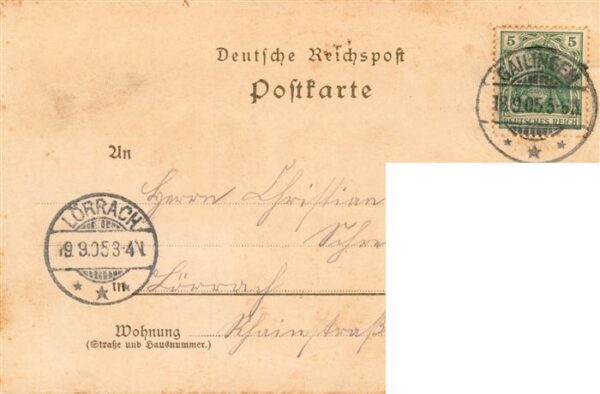 5 5
DEUTSCHES REICH
GAILINGEN
18.9.05.5-6N
Deutsche Reichspost
Postkarte
An
Herrn Christian
Schre
LÖRRACH
19.9.05 3-4V.
in Lörrach
Wohnung
(Straße und Hausnummer.)
Rheinstraß